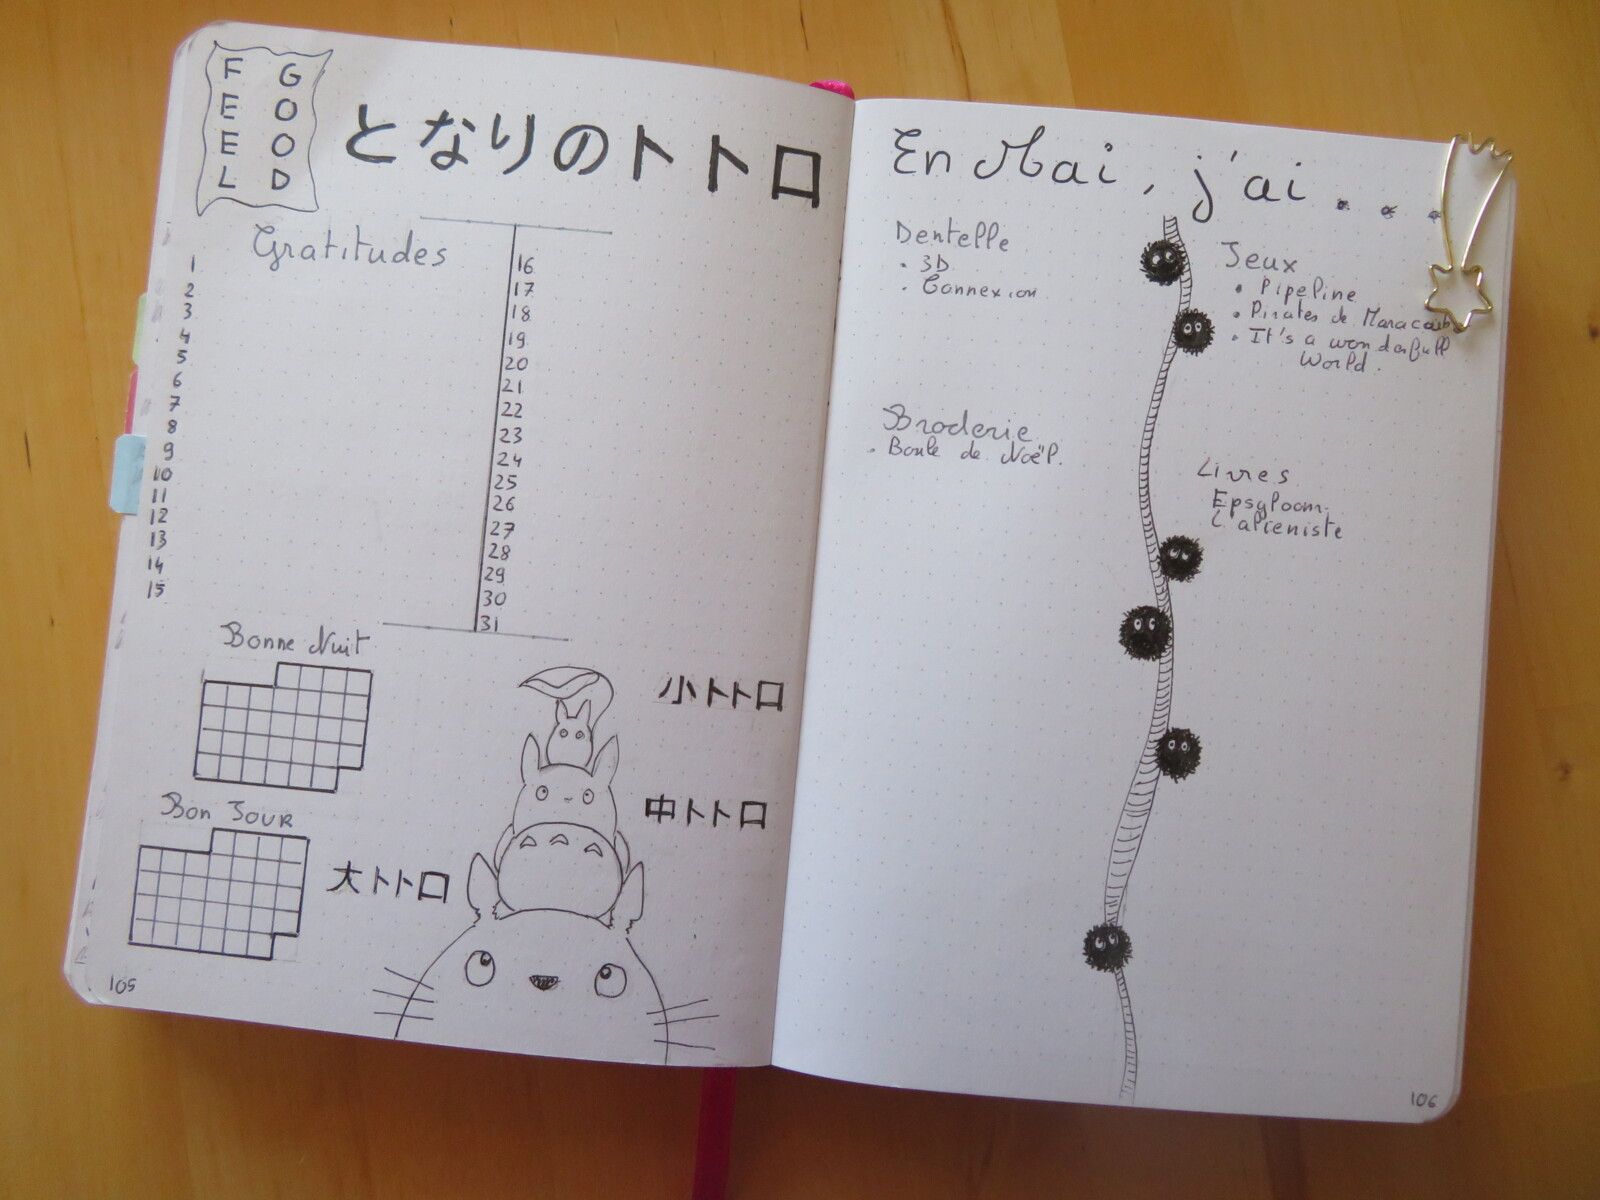 FEEL
GOOD
となりのトトロ
Gratitudes
1
2
3
4
5
6
7
8
9
10
11
12
13
14
15
16
17
18
19
20
21
22
23
24
25
26
27
28
29
30
31
Bonne Nuit
Bon Jour
小トトロ
中トトロ
大トトロ
105
En Mai, j'ai...
Dentelle
• 3D
• Connexion
Broderie
• Boule de Noël.
Jeux
• Pipeline
• Pirates de Maracaibo
• It's a wonderfull
World.
Livres
Epsyloom.
L'alieniste
106